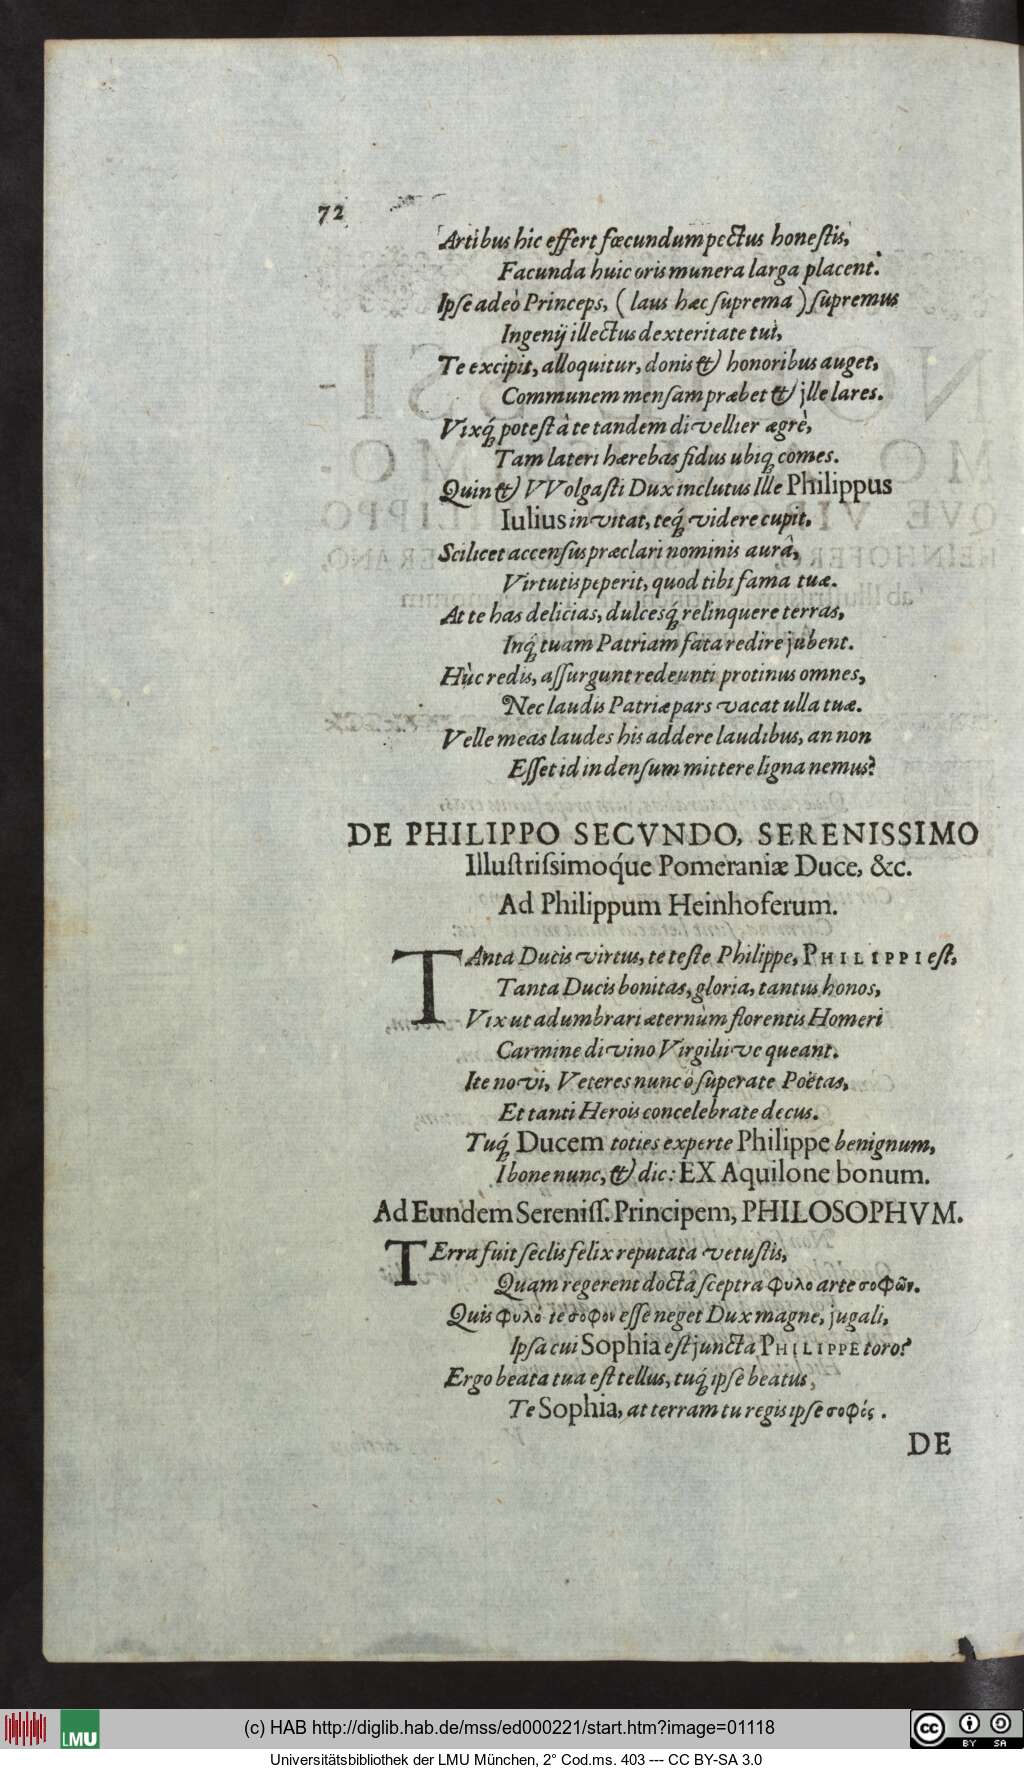 72
Artibus hic effert fœcundum pectus honeſtis,
Facunda huic oris munera larga placent.
Ipſe adeò Princeps, (laus hæc ſuprema) ſupremus
Ingenij illectus dexteritate tui,
Te excipit, alloquitur, donis & honoribus auget,
Communem menſam præbet & jlle lares.
Vixq́; poteſt à te tandem divellier ægrè,
Tam lateri hærebas fidus ubiq; comes.
Quin & VVolgaſti Dux inclutus Ille Philippus
Iulius invitat, teq́; videre cupit,
Scilicet accenſus præclari nominis aurâ,
Virtutis peperit, quod tibi fama tuæ.
At te has delicias, dulcesq́; relinquere terras,
Inq́; tuam Patriam fata redire jubent.
Hùc redis, aſſurgunt redeunti protinus omnes,
Nec laudis Patriæ pars vacat ulla tuæ.
Velle meas laudes his addere laudibus, an non
Eſſet id in denſum mittere ligna nemus?
DE PHILIPPO SECVNDO, SERENISSIMO
Illuſtriſsimoq́ue Pomeraniæ Duce, &c.
Ad Philippum Heinhoferum.
TAnta Ducis virtus, te teſte Philippe, PHILIPPI eſt,
Tanta Ducis bonitas, gloria, tantus honos,
Vix ut adumbrari æternùm florentis Homeri
Carmine divino Virgilii ve queant.
Ite novi, Veteres nunc ô ſuperate Poëtas,
Et tanti Herois concelebrate decus.
Tuq́; Ducem toties experte Philippe benignum,
I bone nunc, & dic: EX Aquilone bonum.
Ad Eundem Sereniſſ. Principem, PHILOSOPHVM.
TErra fuit ſeclis felix reputata vetuſtis,
Quam regerent docta ſceptra φυλο arte σοφῶν.
Quis φυλό te σοφον eſſe neget Dux magne, jugali,
Ipſa cui Sophia eſt juncta PHILIPPE toro?
Ergo beata tua eſt tellus, tuq́; ipſe beatus,
Te Sophia, at terram tu regis ipſe σοφός.
DE
(c) HAB http://diglib.hab.de/mss/ed000221/start.htm?image=01118
LMU
cc BY SA
Universitätsbibliothek der LMU München, 2° Cod.ms. 403 --- CC BY-SA 3.0